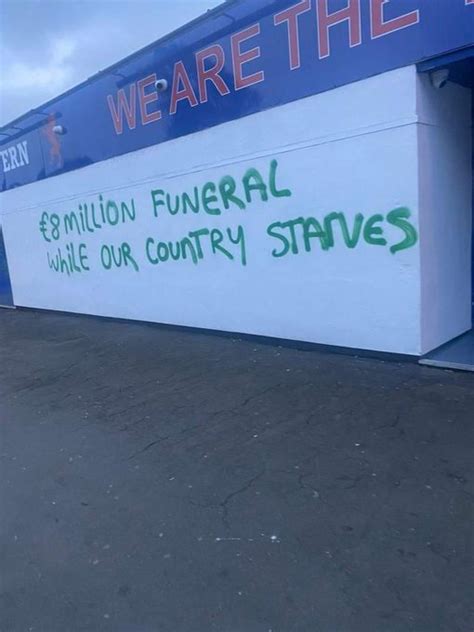 WE ARE THE
ERN
€8 MiLLION FUNERAL
WhiLE OUR COUNTRY STARVES